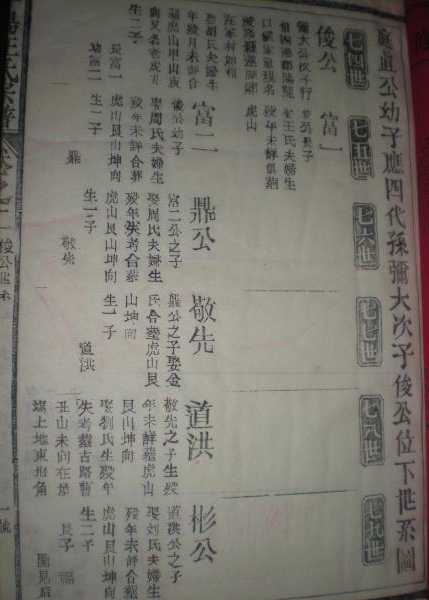 庭直公幼子應四代孫彌大次子俊公位下世系圖
七四世
七五世
七六世
七七世
七八世
七九世
俊公
彌大公次子行
娶胡氏夫婦生
歿年月未詳合
葬虎山甲山庚
生二子
長富一
幼富二
富一
俊公長子
娶王氏夫婦生
歿年未詳俱葬
虎山
富二
俊公幼子
娶周氏夫婦生
歿年未詳合葬
虎山艮山坤向
生一子
鼎
鼎公
富二公之子
娶周氏夫婦生
歿年失考合葬
虎山艮山坤向
生一子
敬先
敬先
鼎公之子娶金
氏合葬虎山艮
山坤向
生一子
道洪
道洪
敬先之子生歿
年未詳葬虎山
艮山坤向
娶劉氏生歿年
失考葬古路曹
丑山未向在
東北角
彬公
道洪公之子
娶刘氏夫婦生
歿年未詳合葬
虎山艮山坤向
生二子
長子福
圖見后
王氏宗譜
俊公